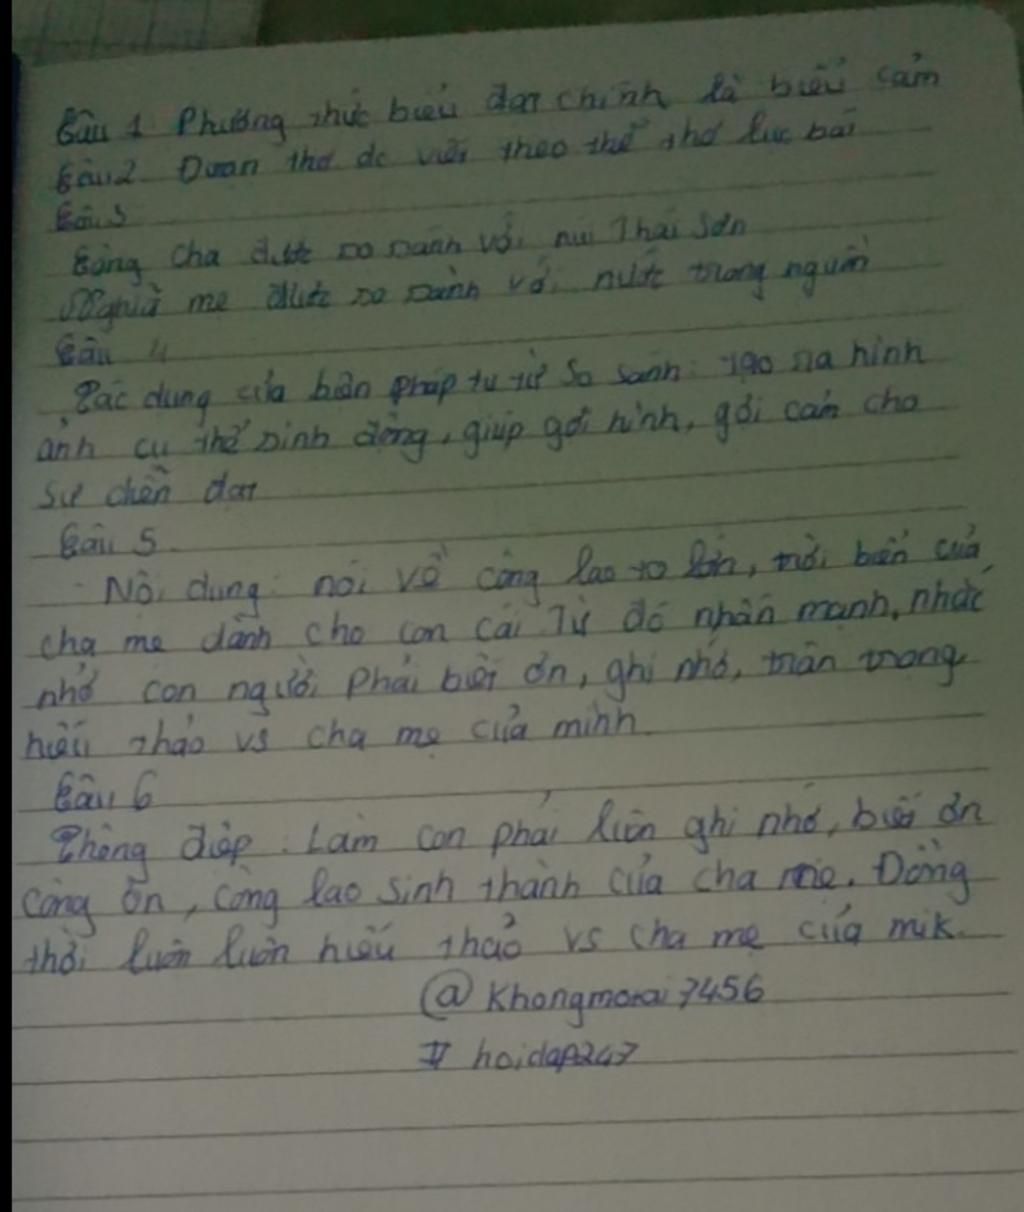 Câu 1 Phương thức biểu đạt chính là biểu cảm
Câu 2 Đoạn thơ dc viết theo thể thơ lục bát
Câu 3
Công cha được so sánh với núi Thái Sơn
Nghĩa mẹ được so sánh với nước trong nguồn
Câu 4
Tác dụng của biện pháp tu từ so sánh: tạo ra hình
ảnh cụ thể sinh động, giúp gợi hình, gợi cảm cho
sự diễn đạt
Câu 5
- Nội dung: nói về công lao to lớn, trời biển của
cha mẹ dành cho con cái Từ đó nhấn mạnh, nhắc
nhở con người phải biết ơn, ghi nhớ, trân trọng,
hiếu thảo vs cha mẹ của mình.
Câu 6
Thông điệp: Làm con phải luôn ghi nhớ, biết ơn
công ơn, công lao sinh thành của cha mẹ. Đồng
thời luôn luôn hiếu thảo vs cha mẹ của mik.
@ Khongmorai7456
# hoidap247